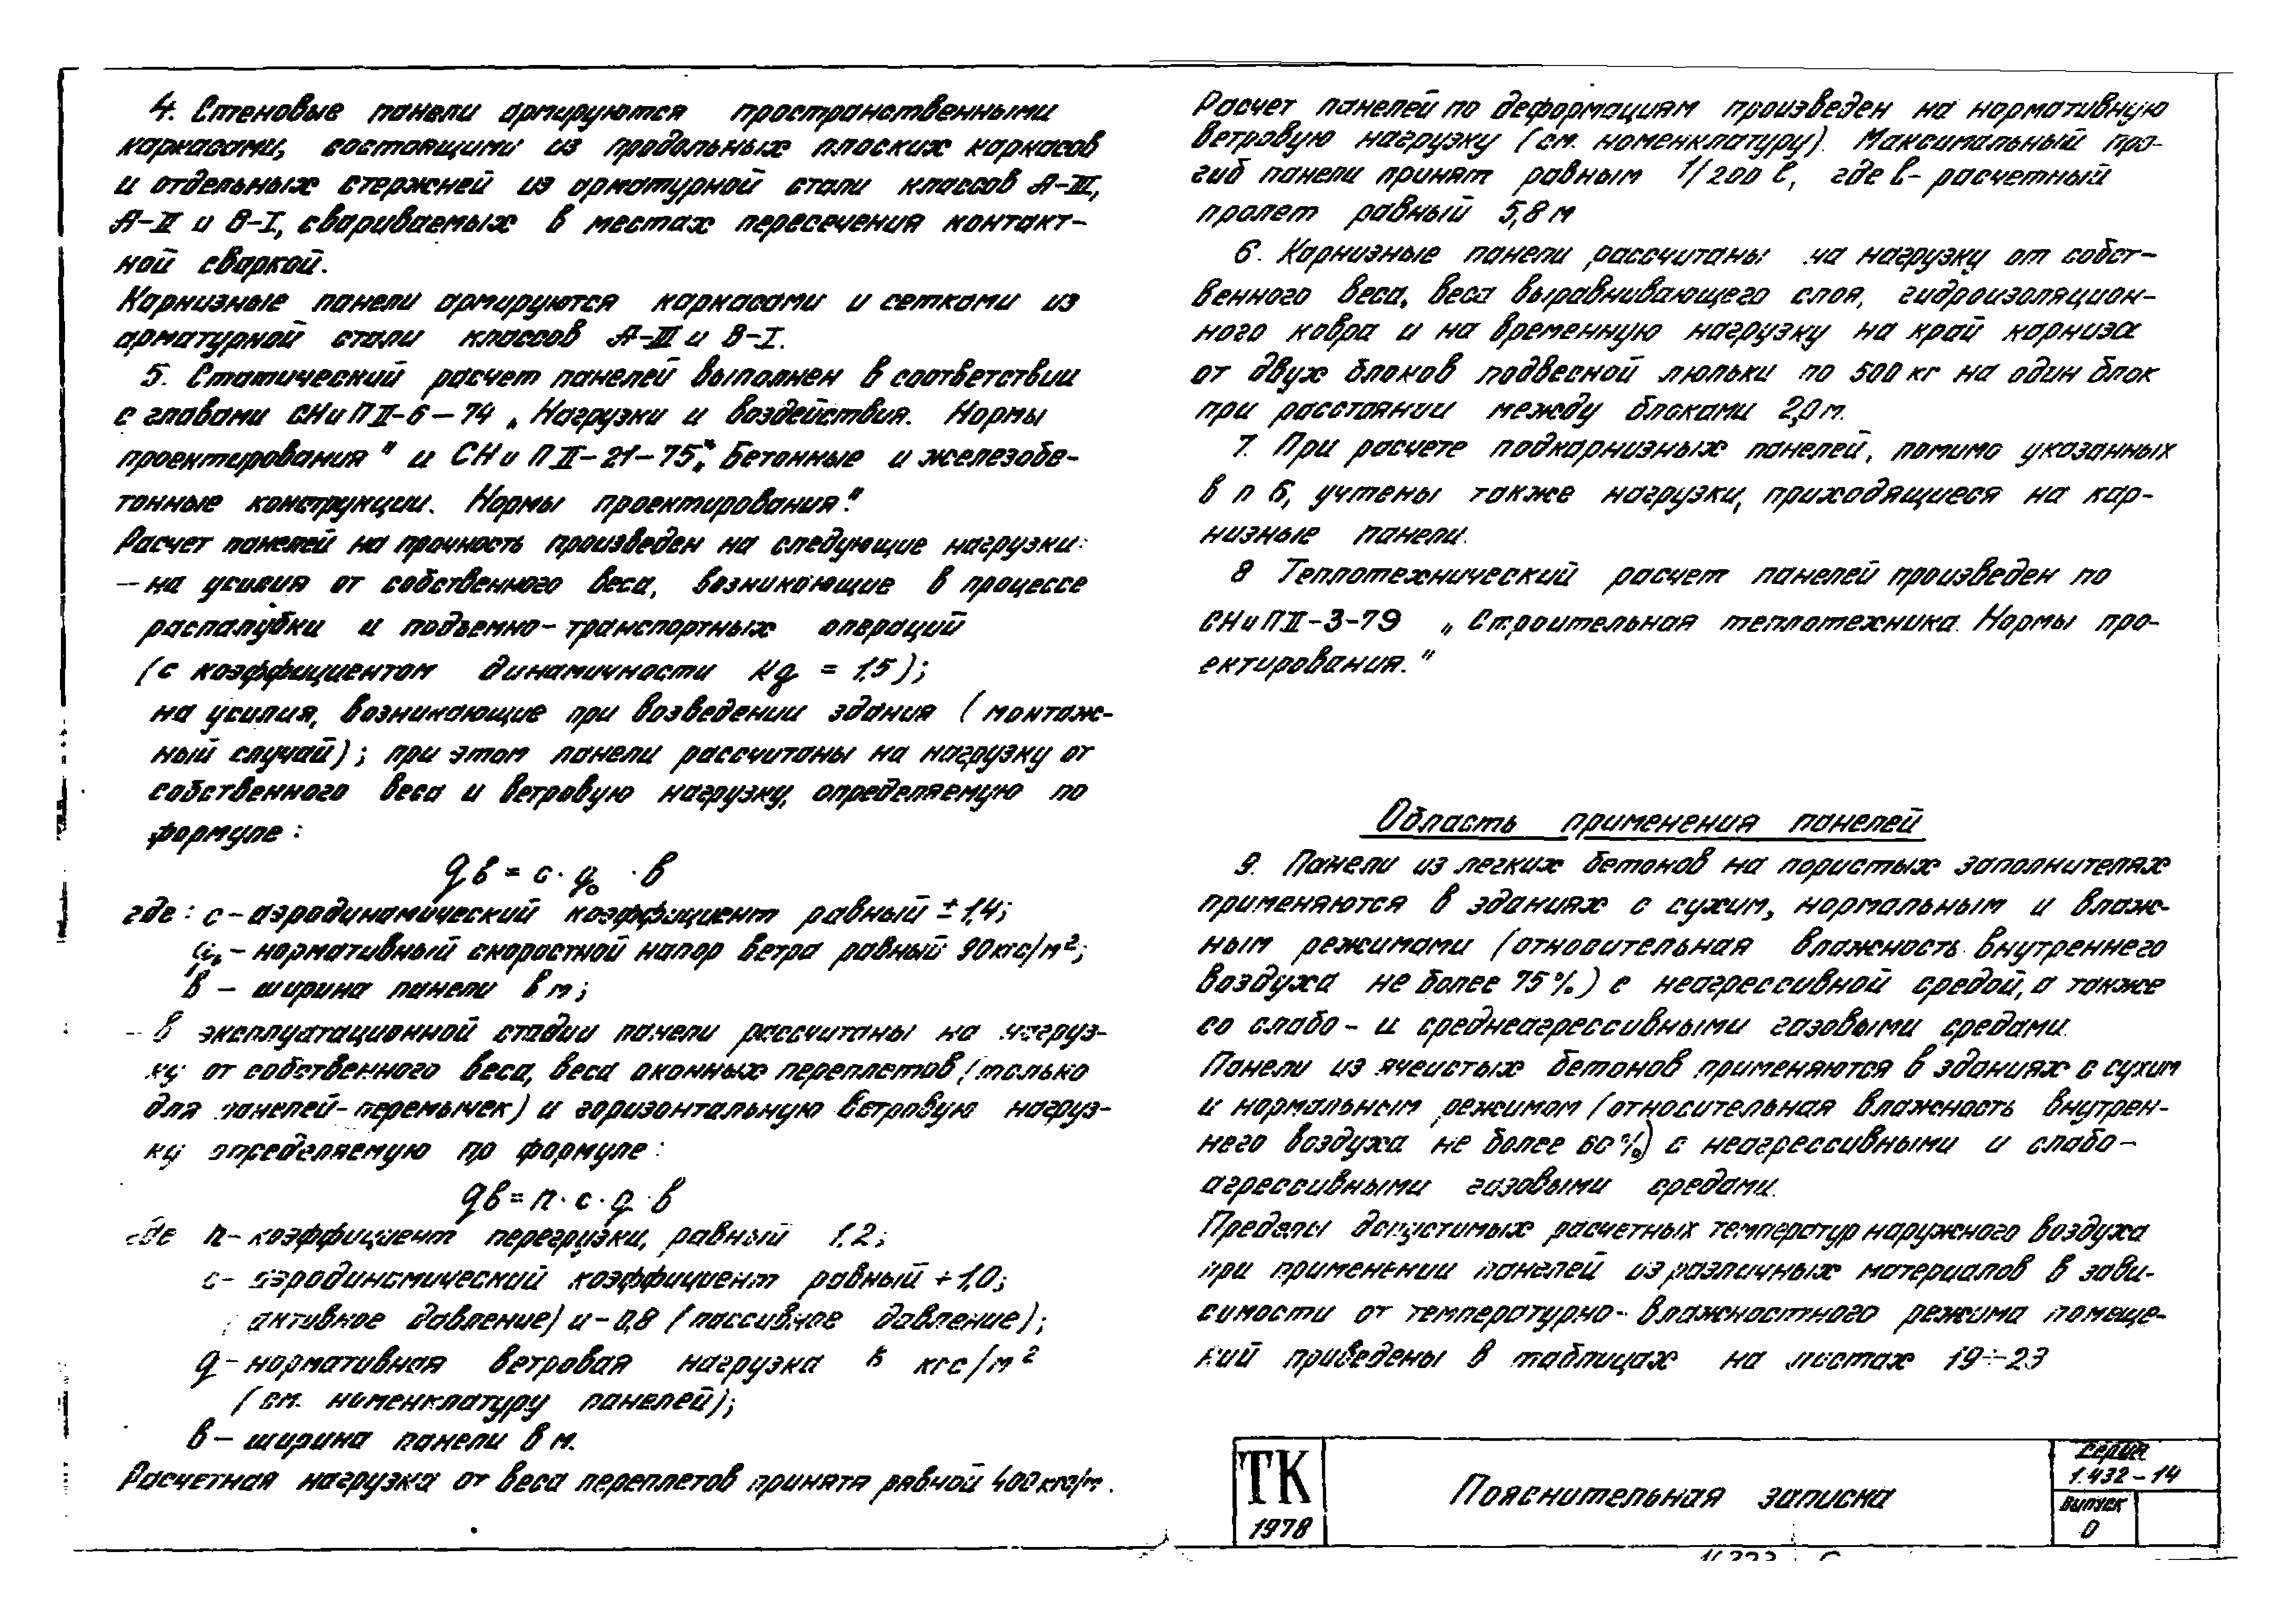 4. Стеновые панели армируются пространственными
каркасами, состоящими из продольных плоских каркасов
и отдельных стержней из арматурной стали классов А-III,
А-II и В-I, свариваемых в местах пересечения контакт-
ной сваркой.
Карнизные панели армируются каркасами и сетками из
арматурной стали классов А-III и В-I.
5. Статический расчет панелей выполнен в соответствии
с главами СНиП II-6-74 „Нагрузки и воздействия. Нормы
проектирования" и СНиП II-21-75 „Бетонные и железобе-
тонные конструкции. Нормы проектирования".
Расчет панелей на прочность произведен на следующие нагрузки:
- на усилия от собственного веса, возникающие в процессе
распалубки и подъемно-транспортных операций
(с коэффициентом динамичности Кд = 1,5);
на усилия, возникающие при возведении здания (монтаж-
ный случай); при этом панели рассчитаны на нагрузку от
собственного веса и ветровую нагрузку, определяемую по
формуле:
qв = с · q₀ · в
где: с - аэродинамический коэффициент равный ± 1,4;
q₀ - нормативный скоростной напор ветра равный 90 кгс/м²;
в - ширина панели в м;
- в эксплуатационной стадии панели рассчитаны на нагруз-
ку от собственного веса, веса оконных переплетов (только
для панелей-перемычек) и горизонтальную ветровую нагруз-
ку определяемую по формуле:
qв = n · с · q · в
где n - коэффициент перегрузки, равный 1,2;
с - аэродинамический коэффициент равный + 1,0;
(активное давление) и - 0,8 (пассивное давление);
q - нормативная ветровая нагрузка в кгс/м²
(см. номенклатуру панелей);
в - ширина панели в м.
Расчетная нагрузка от веса переплетов принята равной 400 кгс/м.
Расчет панелей по деформациям произведен на нормативную
ветровую нагрузку (см. номенклатуру). Максимальный про-
гиб панели принят равным 1/200 ℓ, где ℓ - расчетный
пролет равный 5,8 м
6. Карнизные панели рассчитаны на нагрузку от собст-
венного веса, веса выравнивающего слоя, гидроизоляцион-
ного ковра и на временную нагрузку на край карниза
от двух блоков подвесной люльки по 500 кг на один блок
при расстоянии между блоками 2,0 м.
7. При расчете подкарнизных панелей, помимо указанных
в п 6, учтены также нагрузки, приходящиеся на кар-
низные панели.
8 Теплотехнический расчет панелей произведен по
СНиП II-3-79 „Строительная теплотехника. Нормы про-
ектирования."
Область применения панелей
9. Панели из легких бетонов на пористых заполнителях
применяются в зданиях с сухим, нормальным и влаж-
ным режимами (относительная влажность внутреннего
воздуха не более 75%) с неагрессивной средой, а также
со слабо- и среднеагрессивными газовыми средами.
Панели из ячеистых бетонов применяются в зданиях с сухим
и нормальным режимом (относительная влажность внутрен-
него воздуха не более 60%) с неагрессивными и слабо-
агрессивными газовыми средами.
Пределы допустимых расчетных температур наружного воздуха
при применении панелей из различных материалов в зави-
симости от температурно-влажностного режима помеще-
ний приведены в таблицах на листах 19÷23
ТК
1978
Пояснительная записка
Серия
1.432-14
Выпуск
0